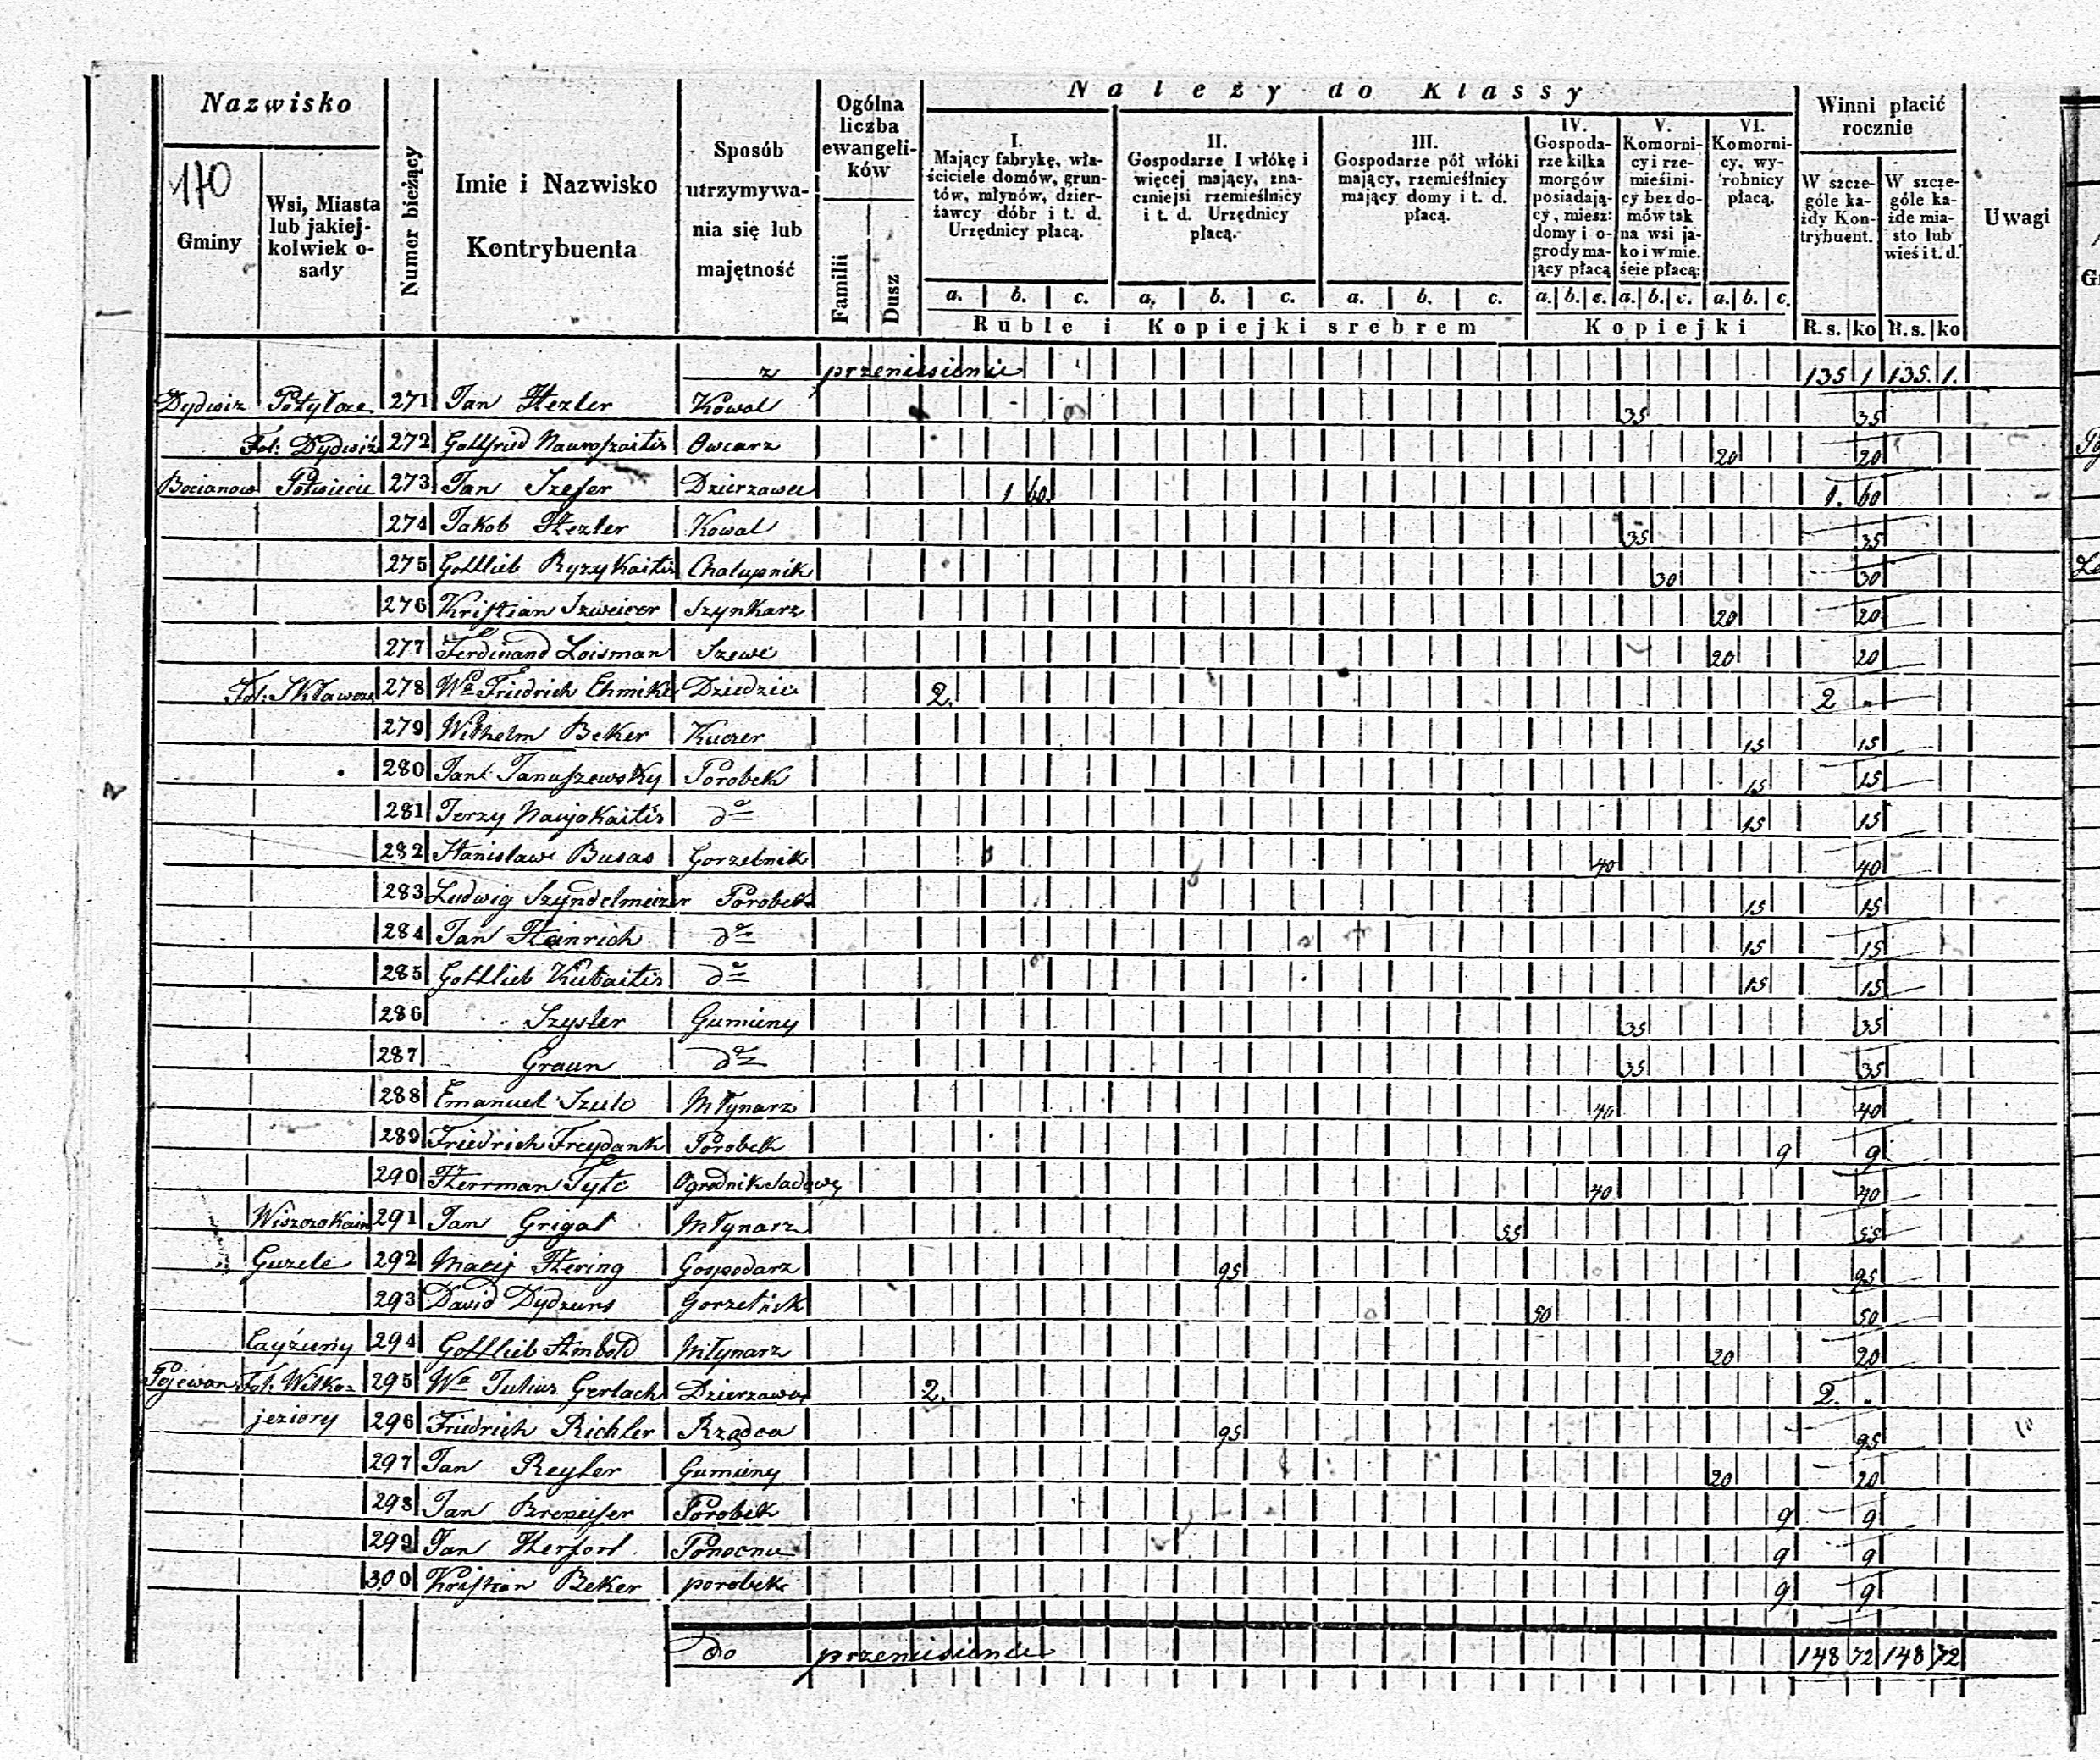 Nazwisko
170
Gminy
Wsi, Miasta lub jakiej-kolwiek o-sady
Numor bieżący
Imie i Nazwisko Kontrybuenta
Sposób utrzymywa-nia się lub majętność
Ogólna liczba ewangeli-ków
Familii
Dusz
Należy do Klassy
I. Mający fabrykę, wła-ściciele domów, grun-tów, młynów, dzier-żawcy dóbr i t. d. Urzędnicy płacą.
II. Gospodarze I włókę i więcej mający, zna-czniejsi rzemieślnicy i t. d. Urzędnicy płacą.
III. Gospodarze pół włóki mający, rzemieślnicy mający domy i t. d. płacą.
IV. Gospoda-rze kilka morgów posiadają-cy, miesz: domy i o-grody ma-jący płacą
V. Komorni-cy i rze-mieślni-cy bez do-mów tak na wsi ja-ko i w mie. ście płacą:
VI. Komorni-cy, wy-robnicy płacą.
Winni płacić rocznie
W szcze-góle ka-żdy Kon-trybuent.
W szcze-góle ka-żde mia-sto lub wieś i t. d.
Uwagi
a. b. c. a. b. c. a. b. c. a. b. c. a. b. c. a. b. c.
Ruble i Kopiejki srebrem Kopiejki R.s. ko R.s. ko
z przeniesienia 135 1 135. 1.
Dydwiz Potyłcze 271 Jan Hezler Kowal 35 35
Fol: Dydwiż 272 Gottfried Nauroszaitis Owcarz 20 20
Bocianow Połwiecie 273 Jan Szefer Dzierzawca 1 60. 1. 60
274 Jakob Hezler Kowal 35 35
275 Gottlieb Ryzykaitis Chalupnik 30 30
276 Kristian Szweicer Szynkarz 20 20
277 Ferdinand Loisman Szewc 20 20
Fol: 278 Wn Friedrich Ehmike Dziedzic 2. 2 "
279 Wilhelm Beker Kuczer 15 15
280 Jan Januszewsky Porobek 15 15
281 Jerzy Naujokaitis do 15 15
282 Stanislaw Busas Gorzelnik 40 40
283 Ludwig Szyndelmeizer Porobek 15 15
284 Jan Heinrich do 15 15
285 Gottlieb Kubaitis do 15 15
286 Szysler Gumieny 35 35
287 Graun do 35 35
288 Emanuel Szulc Młynarz 40 40
289 Friedrich Freydank Porobek 9 9
290 Herrman Tytc Ogrodnik Sadowy 40 40
291 Jan Grigat Młynarz 55 55
Guzele 292 Maciej Hering Gospodarz 95 95
293 David Dydzuns Gorzelnik 50 50
Czyżuny 294 Gottlieb Ambold Młynarz 20 20
Pojewon. Fol. Wilko= 295 Wn Julius Gerlach Dzierzawca 2. 2. "
jeziory 296 Friedrich Richler Rządca 95 95
297 Jan Reyler Gumieny 20 20
298 Jan Breneiser Porobek 9 9
299 Jan Herfort. 9 9
300 Kristian Beker porobek 9 9
do przeniesienia 148 72 148 72